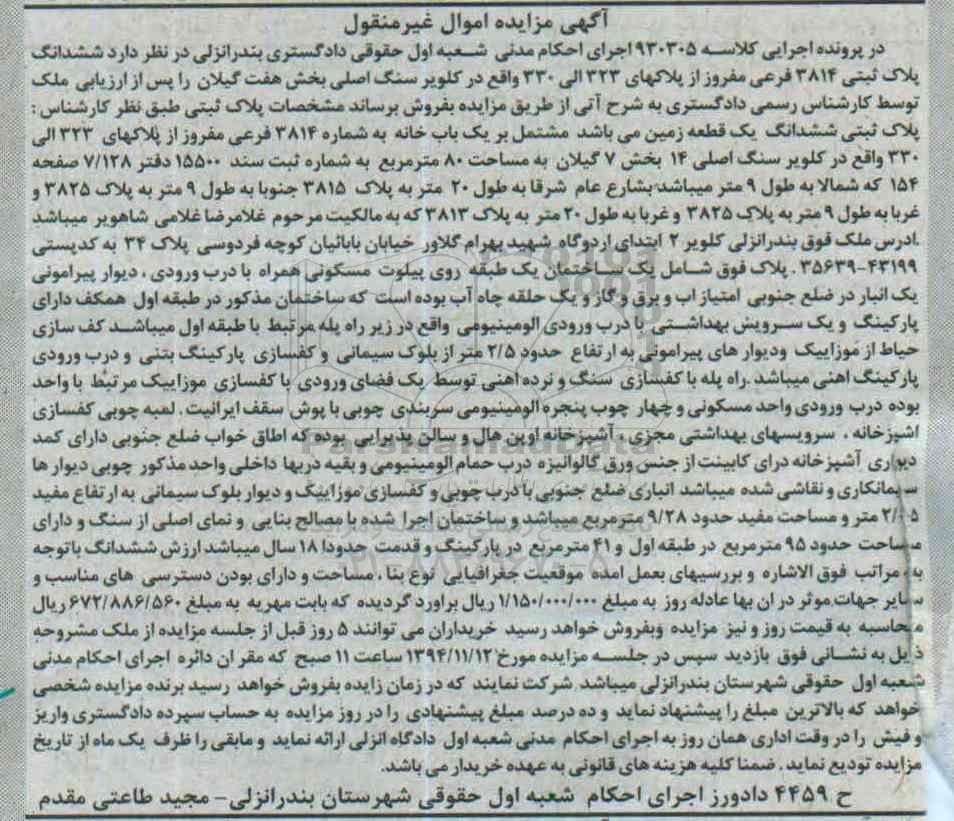 آگهی مزایده اموال غیرمنقول
در پرونده اجرایی کلاسه ۹۳۰۳۰۵ اجرای احکام مدنی شعبه اول حقوقی دادگستری بندرانزلی در نظر دارد ششدانگ
پلاک ثبتی ۳۸۱۴ فرعی مفروز از پلاکهای ۳۲۳ الی ۳۳۰ واقع در کلویر سنگ اصلی بخش هفت گیلان را پس از ارزیابی ملک
توسط کارشناس رسمی دادگستری به شرح آتی از طریق مزایده بفروش برساند مشخصات پلاک ثبتی طبق نظر کارشناس:
پلاک ثبتی ششدانگ یک قطعه زمین می باشد مشتمل بر یک باب خانه به شماره ۳۸۱۴ فرعی مفروز از پلاکهای ۳۲۳ الی
۳۳۰ واقع در کلویر سنگ اصلی ۱۴ بخش ۷ گیلان به مساحت ۸۰ مترمربع به شماره ثبت سند ۱۵۵۰۰ دفتر ۷/۱۲۸ صفحه
۱۵۴ که شمالا به طول ۹ متر میباشد بشارع عام شرقا به طول ۲۰ متر به پلاک ۳۸۱۵ جنوبا به طول ۹ متر به پلاک ۳۸۲۵ و
غربا به طول ۹ متر به پلاک ۳۸۲۵ و غربا به طول ۲۰ متر به پلاک ۳۸۱۳ که به مالکیت مرحوم غلامرضا غلامی شاهویر میباشد
.ادرس ملک فوق بندرانزلی کلویر ۲ ابتدای اردوگاه شهید بهرام گلاور خیابان بابائیان کوچه فردوسی پلاک ۳۴ به کدپستی
۴۳۱۹۹-۳۵۶۳۹ . پلاک فوق شامل یک ساختمان یک طبقه روی پیلوت مسکونی همراه با درب ورودی ، دیوار پیرامونی
یک انبار در ضلع جنوبی امتیاز اب و برق و گاز و یک حلقه چاه آب بوده است که ساختمان مذکور در طبقه اول همکف دارای
پارکینگ و یک سرویش بهداشتی با درب ورودی الومینیومی واقع در زیر راه پله مرتبط با طبقه اول میباشد کف سازی
حیاط از موزاییک ودیوار های پیرامونی به ارتفاع حدود ۲/۵ متر از بلوک سیمانی و کفسازی پارکینگ بتنی و درب ورودی
پارکینگ اهنی میباشد .راه پله با کفسازی سنگ و نرده اهنی توسط یک فضای ورودی با کفسازی موزاییک مرتبط با واحد
بوده درب ورودی واحد مسکونی و چهار چوب پنجره الومینیومی سربندی چوبی با پوش سقف ایرانیت . لمبه چوبی کفسازی
اشپزخانه ، سرویسهای بهداشتی مجزی ، آشپزخانه اوپن هال و سالن پذیرایی بوده که اطاق خواب ضلع جنوبی دارای کمد
دیواری آشپزخانه درای کابینت از جنس ورق گالوالیزه درب حمام الومینیومی و بقیه دربها داخلی واحد مذکور چوبی دیوار ها
سیمانکاری و نقاشی شده میباشد انباری ضلع جنوبی با درب چوبی و کفسازی موزاییک و دیوار بلوک سیمانی به ارتفاع مفید
متر و مساحت مفید حدود ۹/۲۸ مترمربع میباشد و ساختمان اجرا شده با مصالح بنایی و نمای اصلی از سنگ و دارای
مساحت حدود ۹۵ مترمربع در طبقه اول و ۴۱ مترمربع در پارکینگ و قدمت حدودا ۱۸ سال میباشد ارزش ششدانگ باتوجه
به مراتب فوق الاشاره و بررسیهای بعمل امده موقعیت جغرافیایی نوع بنا ، مساحت و دارای بودن دسترسی های مناسب و
سایر جهات موثر در ان بها عادله روز به مبلغ ۱/۱۵۰/۰۰۰/۰۰۰ ریال براورد گردیده که بابت مهریه به مبلغ ۶۷۲/۸۸۶/۵۶۰ ریال
محاسبه به قیمت روز و نیز مزایده وبفروش خواهد رسید خریداران می توانند ۵ روز قبل از جلسه مزایده از ملک مشروحه
ذیل به نشانی فوق بازدید سپس در جلسه مزایده مورخ ۱۳۹۴/۱۱/۱۲ ساعت ۱۱ صبح که مقر ان دائره اجرای احکام مدنی
شعبه اول حقوقی شهرستان بندرانزلی میباشد شرکت نمایند که در زمان زایده بفروش خواهد رسید برنده مزایده شخصی
خواهد که بالاترین مبلغ را پیشنهاد نماید و ده درصد مبلغ پیشنهادی را در روز مزایده به حساب سپرده دادگستری واریز
و فیش را در وقت اداری همان روز به اجرای احکام مدنی شعبه اول دادگاه انزلی ارائه نماید و مابقی را ظرف یک ماه از تاریخ
مزایده تودیع نماید . ضمنا کلیه هزینه های قانونی به عهده خریدار می باشد.
ح ۴۴۵۹ دادورز اجرای احکام شعبه اول حقوقی شهرستان بندرانزلی- مجید طاعتی مقدم